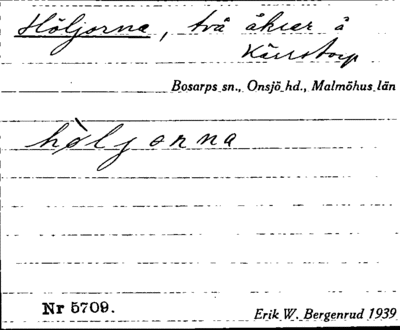 Höljorna, två åkrar å
Kärrstorp
Bosarps sn., Onsjö hd., Malmöhus län
hø̀ljonna
Nr 5709.
Erik W. Bergenrud 1939